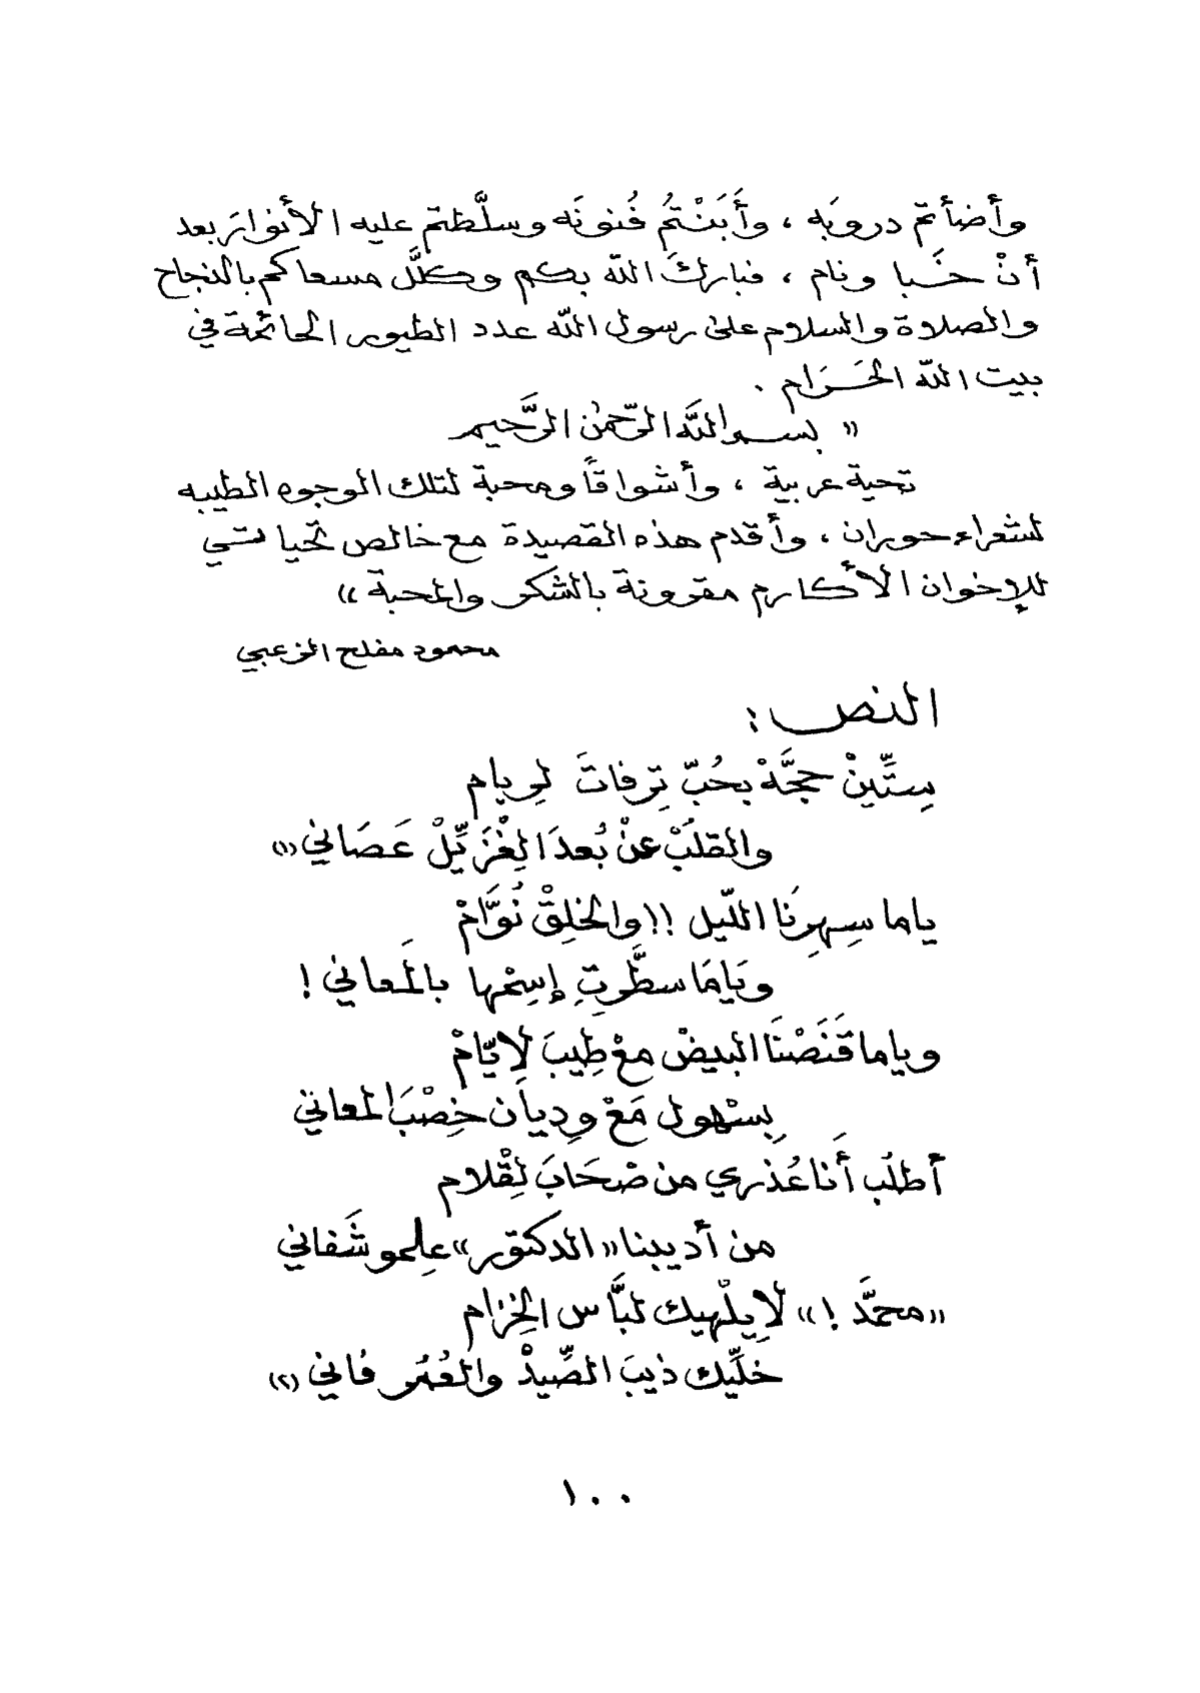 وأضأتم دروبَه ، وأَبَنْتُم فُنونَه وسلَّطتم عليه الأنوارَ بعد
أنْ خَبا ونام ، فباركَ اللّه بكم وكلَّل مسعاكم بالنجاح
والصلاة والسلام على رسول اللّه عدد الطيور الحائمة في
بيت اللّه الحَرَام .
« بسم اللَّه الرّحمٰن الرَّحيم
تحية عربية ، وأشواقاً ومحبة لتلك الوجوه الطيبه
لشعراء حوران ، وأقدم هذه القصيدة مع خالص تحياتي
للإخوان الأكارم مقرونة بالشكر والمحبة »
محمود مفلح الزعبي
النص :
سِتِّينْ حجَّهْ بحُبّ تِرفاتَ لِريام
والقلَبْ عنْ بُعدَ الِغْزَيِّلْ عَصَاني (١)
ياما سِهرِنَا اللّيل !! والخلِقْ نُوَّامْ
ويَامَا سطَّرتِ إسِمْها بالمَعاني !
وياما قَنَصْنَا البيضْ معْ طِيبَ لِايّامْ
بِسْهول مَعْ وِديان خِصْبَ المعاني
أطلُب أَنا عُذري من صْحَابَ لِقْلام
من أديبنا «الدكتور» عِلمو شَفاني
«محمَّد !» لَا يِلْهيك لبَّاس الخِزام
خلِّيك ذيبَ الصِّيدْ والعُمُر فاني (٢)
١٠٠